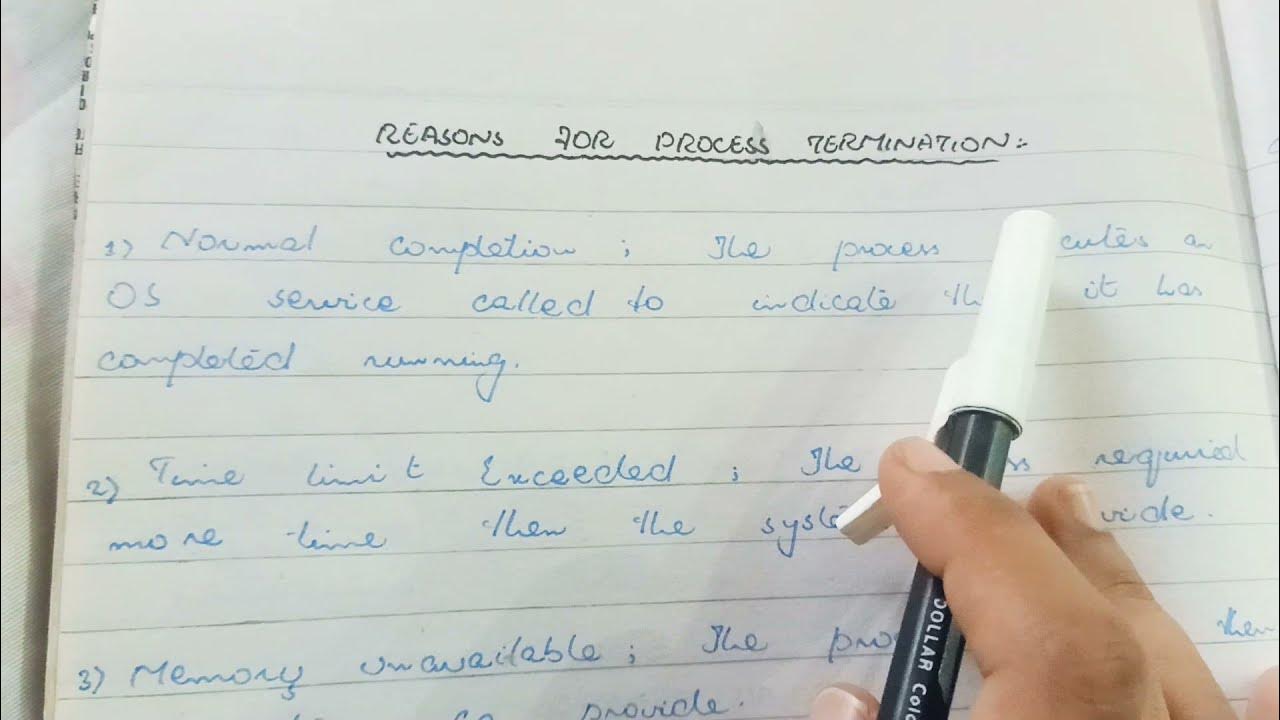 REASONS FOR PROCESS TERMINATION:-
1) Normal completion ; The process cutes an
OS service called to indicate it has
completed running.
2) Time limit Exceeded ; The required
more time then the vide.
3) Memory unavailable ; The then
provide.
DOLLAR Colo